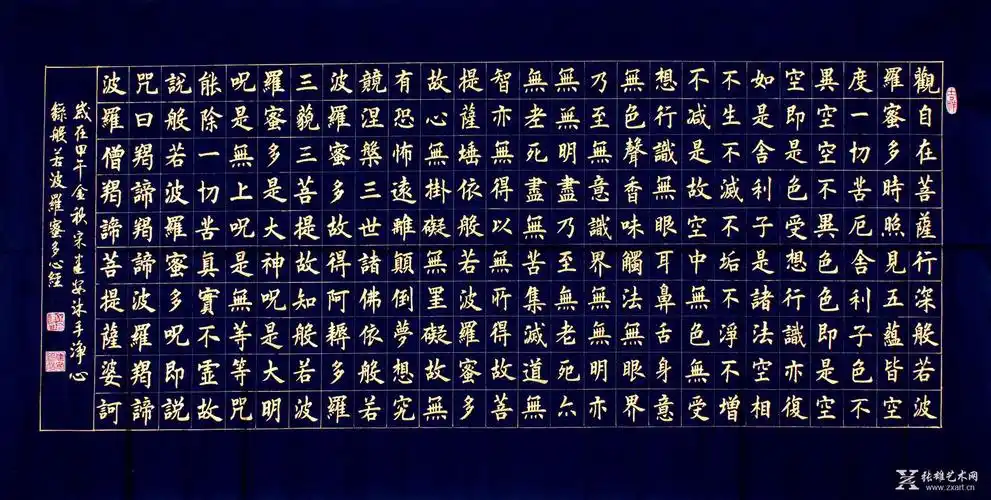 觀自在菩薩行深般若波
羅蜜多時照見五蘊皆空
度一切苦厄舍利子色不
異空空不異色色即是空
空即是色受想行識亦復
如是舍利子是諸法空相
不生不滅不垢不淨不增
不減是故空中無色無受
想行識無眼耳鼻舌身意
無色聲香味觸法無眼界
乃至無意識界無無明亦
無無明盡乃至無老死亦
無老死盡無苦集滅道無
智亦無得以無所得故菩
提薩埵依般若波羅蜜多
故心無掛礙無罣礙故無
有恐怖遠離顛倒夢想究
竟涅槃三世諸佛依般若
波羅蜜多故得阿耨多羅
三藐三菩提故知般若波
羅蜜多是大神呪是大明
呪是無上呪是無等等咒
能除一切苦真實不虛故
說般若波羅蜜多呪即說
咒曰羯諦羯諦波羅羯諦
波羅僧羯諦菩提薩婆訶
歲在甲午金秋宋建安沐手淨心
錄般若波羅蜜多心經
张雄艺术网
www.zxart.cn